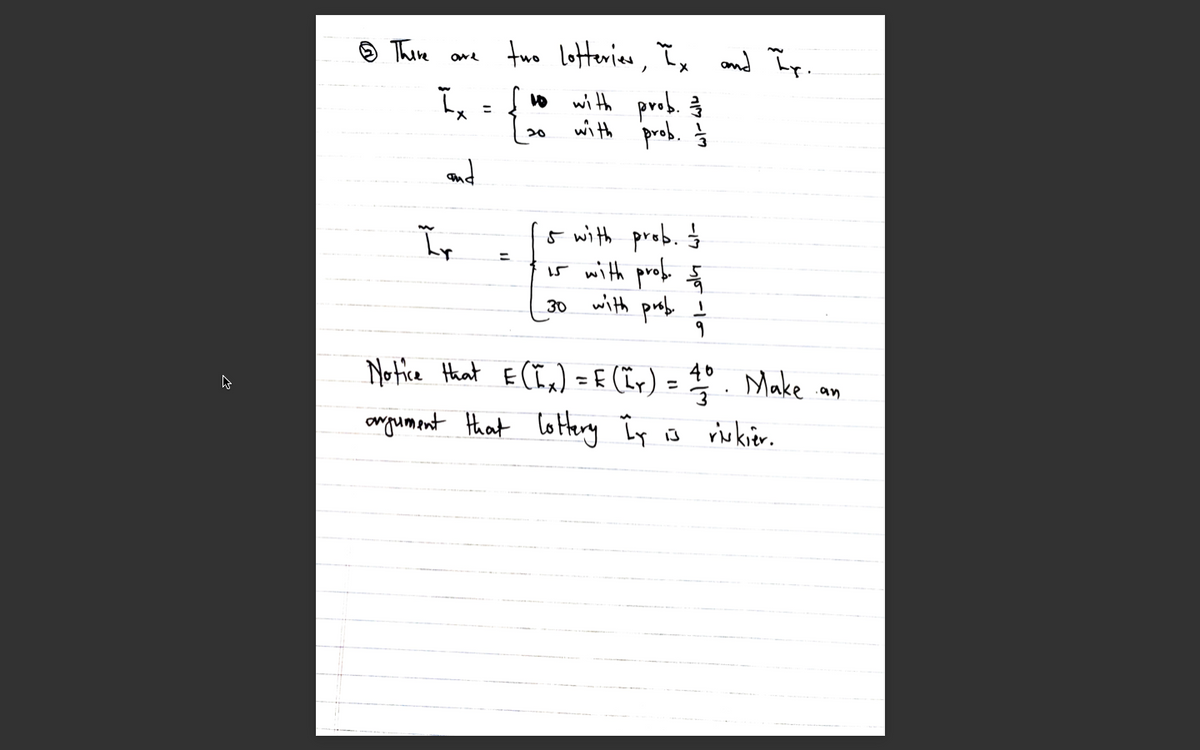 ⑤ There are two lotteries, L̃x and L̃Y.
L̃x = { 10 with prob. 2/3
20 with prob. 1/3
and
L̃Y = { 5 with prob. 1/3
15 with prob. 5/9
30 with prob. 1/9
Notice that E(L̃x) = E(L̃Y) = 40/3. Make an
argument that lottery L̃Y is riskier.